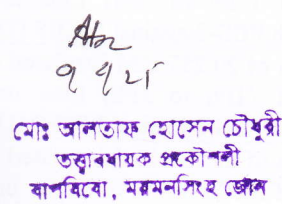 মোঃ আলতাফ হোসেন চৌধুরী
তত্ত্বাবধায়ক প্রকৌশলী
বাপবিবো, ময়মনসিংহ জোন